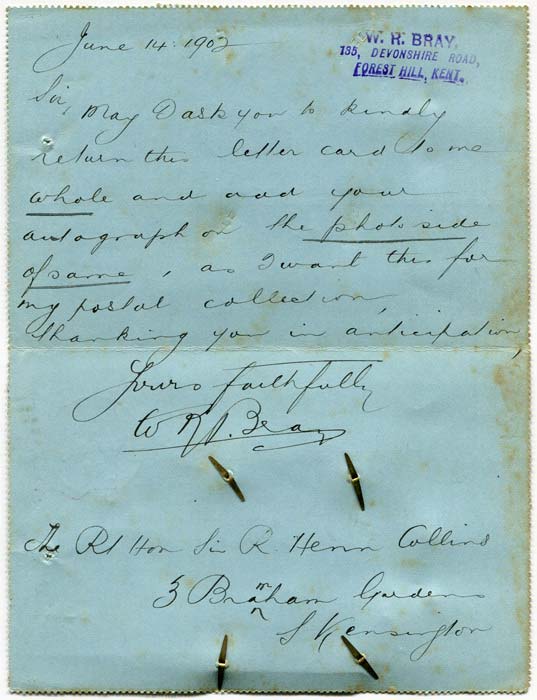 June 14. 1902
W. R. BRAY,
135, DEVONSHIRE ROAD,
FOREST HILL, KENT.
Sir, May I ask you to kindly
return this letter card to me
whole and add your
autograph on the photo side
of same, as I want this for
my postal collection,
thanking you in anticipation,
Yours faithfully
W R. Bray
The Rt Hon Sir R. Henn Collins
3 Bramham Gardens
S Kensington